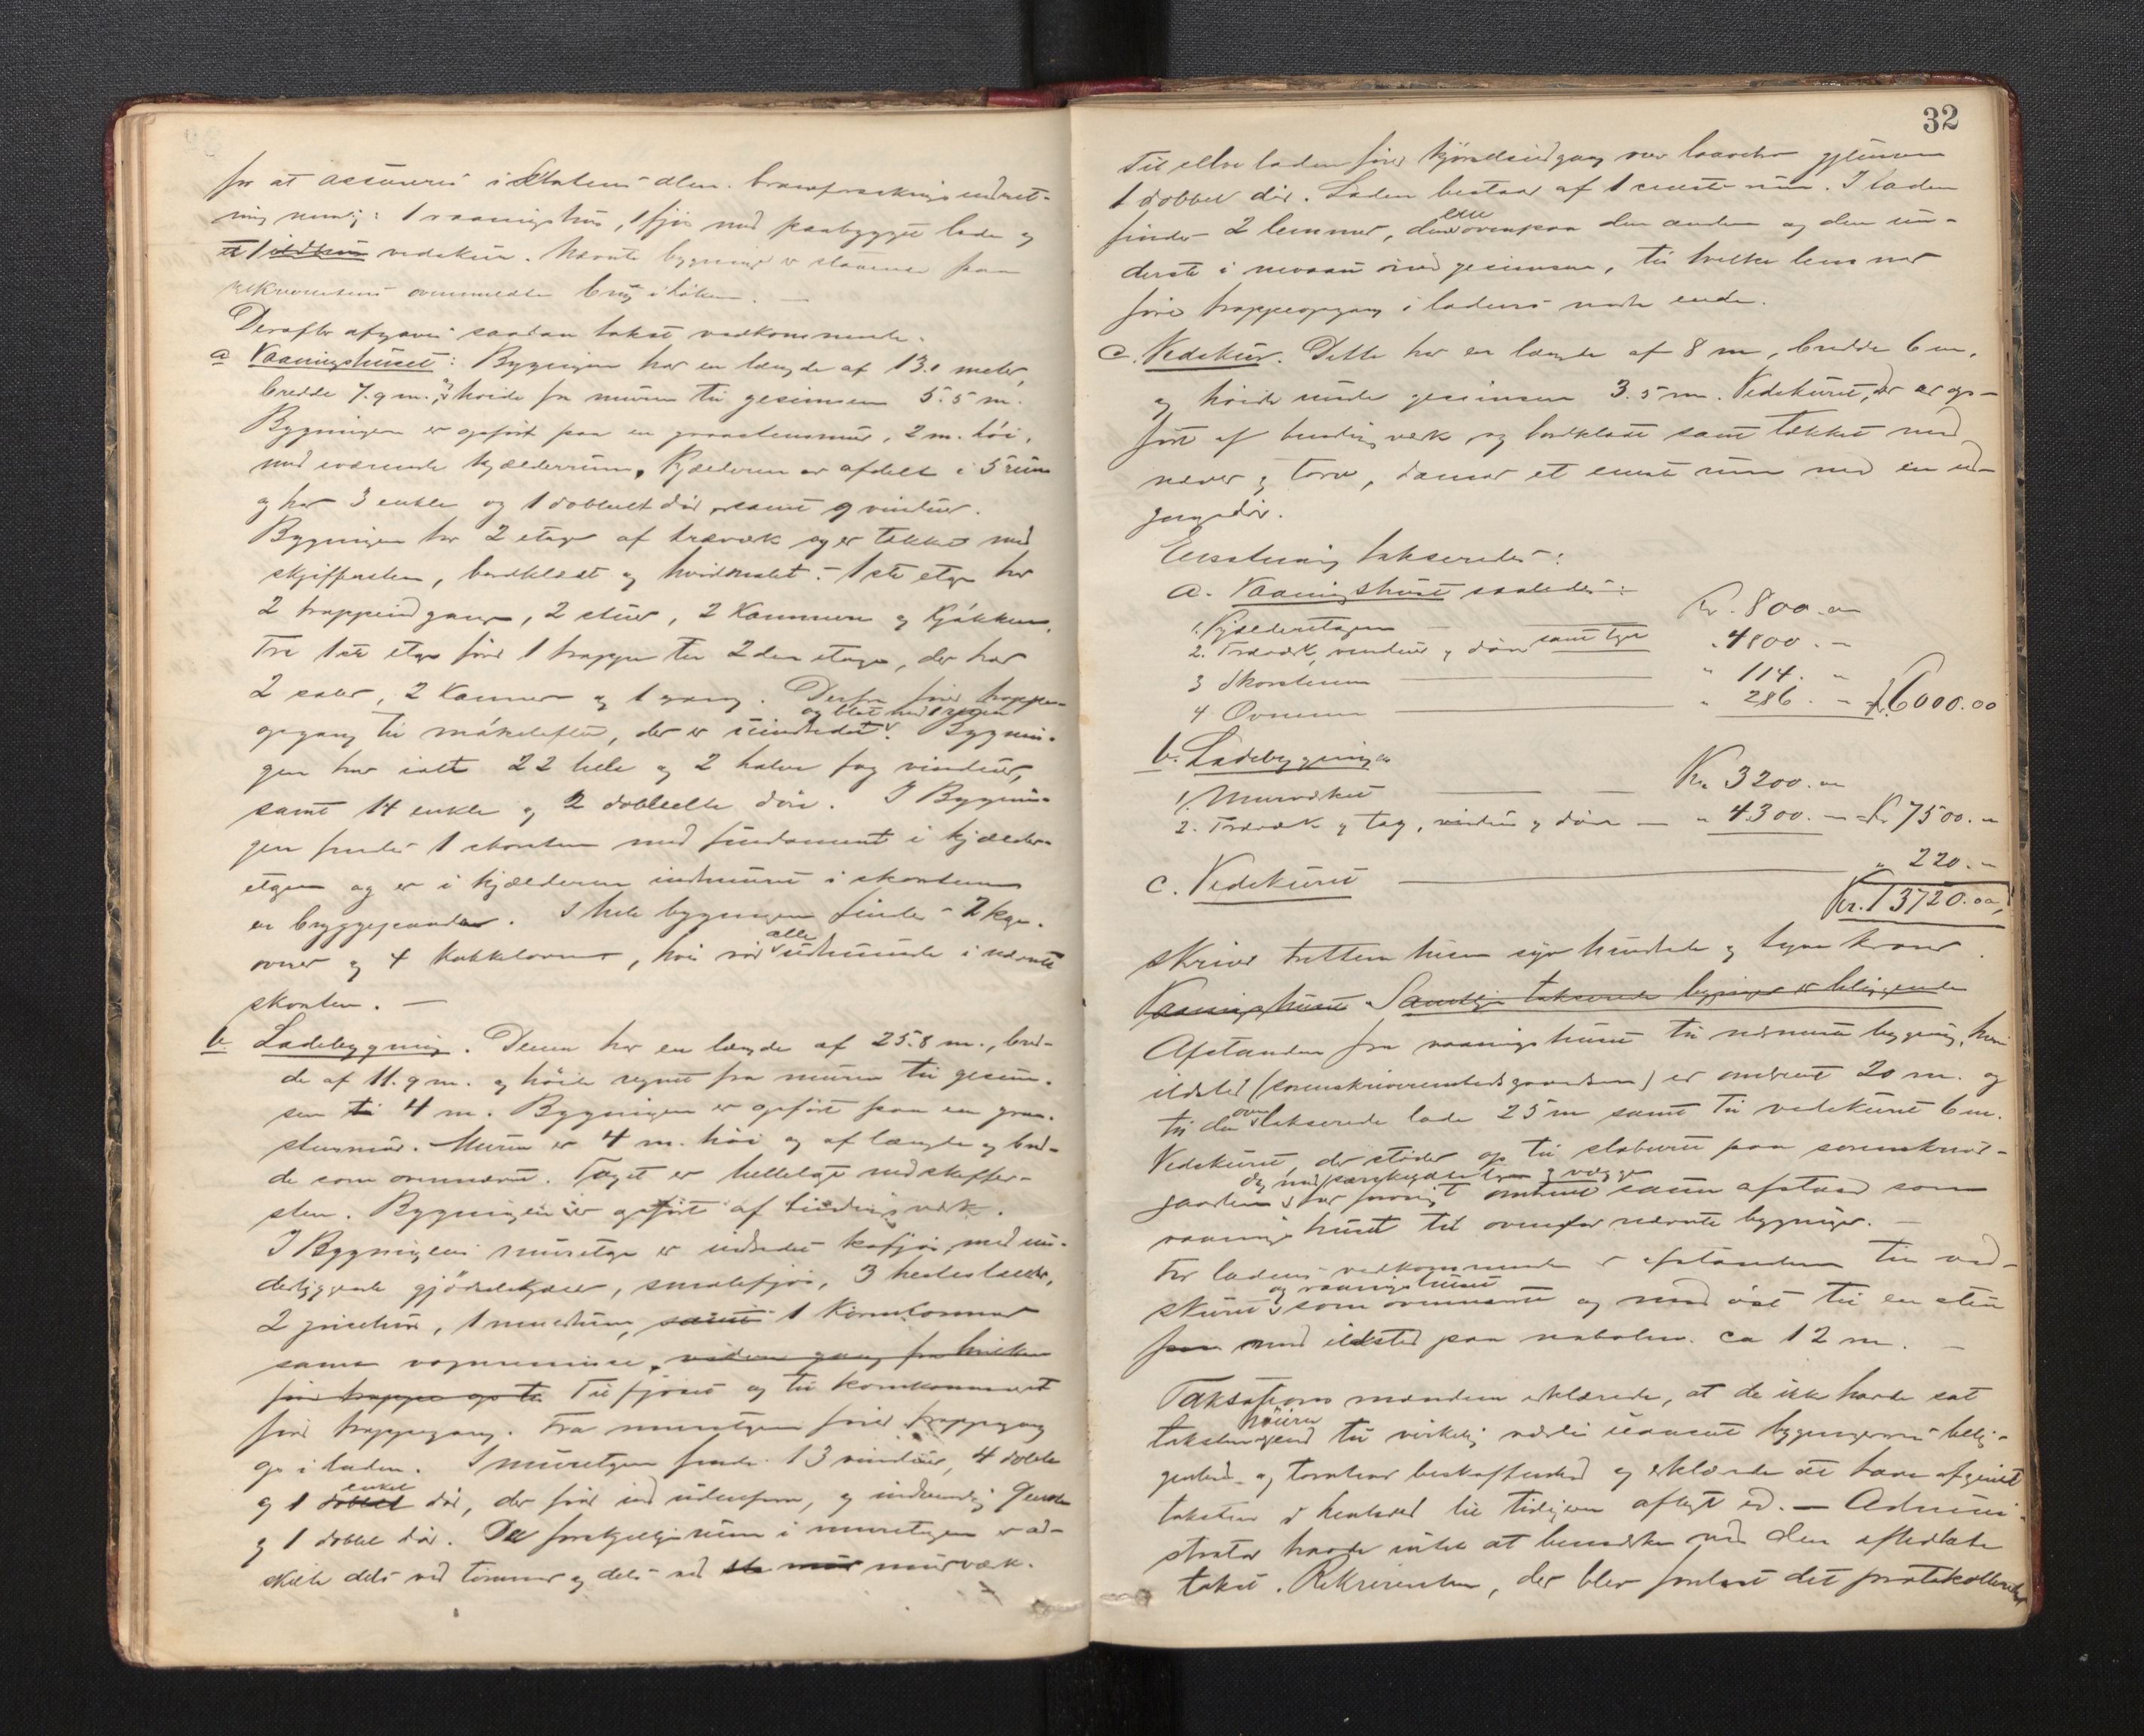 for at assureres i Statens alm. brandforsikringsindret-
ning nemlig: 1 vaaningshus, 1 fjøs med paabygget lade og
1 vedskur. Nævnte bygninger er staaende paa
rekvirentens ovenmeldte brug
Derefter afgaves saadan takst vedkommende.
a Vaaningshuset: Bygningen har en længde af 13.1 meter,
bredde 7.9 m., høide fra muren til gesimsen 5.5 m.
Bygningen er opført paa en graastensmur, 2 m. høi,
med værende kjælderrum. Kjælderen er afdelt i 5 rum
og har 3 enkle og 1 dobbelt dør samt 9 vinduer.
Bygningen har 2 etager af træværk og er tækket med
skiffersten, bordklædt og hvidmalet. 1ste etage har
2 trappeindgange, 2 stuer, 2 Kammere og Kjøkken.
Fra 1ste etage fører 1 trappe til 2den etage, der har
2 saler, 2 Kammer og 1 gang. Derfra fører trappe-
opgang til mørkeloftet, der er uindredet og blot med 1 rum. Bygnin-
gen har ialt 22 hele og 2 halve fag vinduer,
samt 14 enkle og 2 dobbelte døre. I Bygnin-
gen findes 1 skorsten med fundament i kjælder-
etagen og er i kjælderen indmuret i skorstenen
en bryggepande. I hele bygningen findes 2 kog-
ovner og 4 Kakkelovne, hvis rør alle udmunde i nævnte
skorsten. —
b. Ladebygning. Denne har en længde af 25.8 m., bred-
de af 11.9 m. og høide regnet fra muren til gesim-
sen 4 m. Bygningen er opført paa en graa-
stensmur. Muren er 4 m. høi og af længde og bred-
de som ovennævnt. Taget er hellelagt med skiffer-
sten. Bygningen er opført af bindingsværk.
I Bygningens muretage er indredet kofjøs, med un-
derliggende gjødselkjælder, smalefjøs, 3 hestestalde,
2 grisehus, 1 samt 1 Kornkammer
samt vognremisse, videre gang fra hvilken
fører trappe op til Til fjøset og til kornkammeret
fører trappegang. Fra muretagen fører trappegang
op i laden. I muretagen findes 13 vinduer, 4 dobble
og 1 dobbel enkel dør, der fører ind udenfra, og indvendig 9 enkle
og 1 dobbel dør. De forskjellige rum i muretagen er ad-
skilte dels ved tømmer og dels ved mur murværk.
32
Til selve laden fører kjørselsindgang over laavebro gjennem
1 dobbel dør. Laden bestaar af 1 eneste rum. I laden
findes 2 lemmer, den ene ovenpaa den anden og den un-
derste i niveau med gesimsen, til hvilke lemmer
fører trappeopgang i ladens nordre ende.
c. Vedskur. Dette har en længde af 8 m, bredde 6 m,
og høide under gesimsen 3.5 m. Vedskuret, der er op-
ført af bindingsværk og bordklædt samt tækket med
næver og torv, danner et eneste rum med en ud-
gangsdør.
Enstemmig takseredes:
a. Vaaningshuset saaledes:
1. Kjælderetagen — Kr. 800.00
2. Træværk, vinduer og døre samt tag " 4800. "
3 Skorstenen — " 114. "
4. Ovnene — " 286. " Kr. 6000.00
b. Ladebygningen
1. Murværket — Kr. 3200. "
2. Træværk og tag, vinduer og døre — " 4300. " Kr. 7500. "
c. Vedskuret — " 220. "
Kr. 13720.00,
skriver tretten tusen syv hundrede og tyve kroner.
Vaaningshuset Samtlige takserede bygninger er beliggende
Afstanden fra vaaningshuset til nærmeste bygning, hvori
ildsted (sorenskriverembedsgaarden) er omtrent 20 m. og
til den oven takserede lade 25 m samt til vedskuret 6 m.
Vedskuret, der støder op til stabburet paa sorenskriver-
gaarden og har forøvrigt omtrent samme afstand som
vaaningshuset til ovenfor nævnte bygninger. —
For ladens vedkommende er afstanden til ved-
skuret og vaaningshuset som ovennævnt og mod øst til en stue
med ildsted paa ca 12 m. —
Taksationsmændene erklærede, at de ikke havde sat
taksten høiere end til virkelig værdi uanset bygningernes belig-
genhed og tomtens beskaffenhed og erklærede at have afgivet
taksten i henhold til tidligere aflagt ed. — Admini-
strator havde intet at bemærke ved den afholdte
takst. Rekvirenten, der blev forelæst det protokollerede,